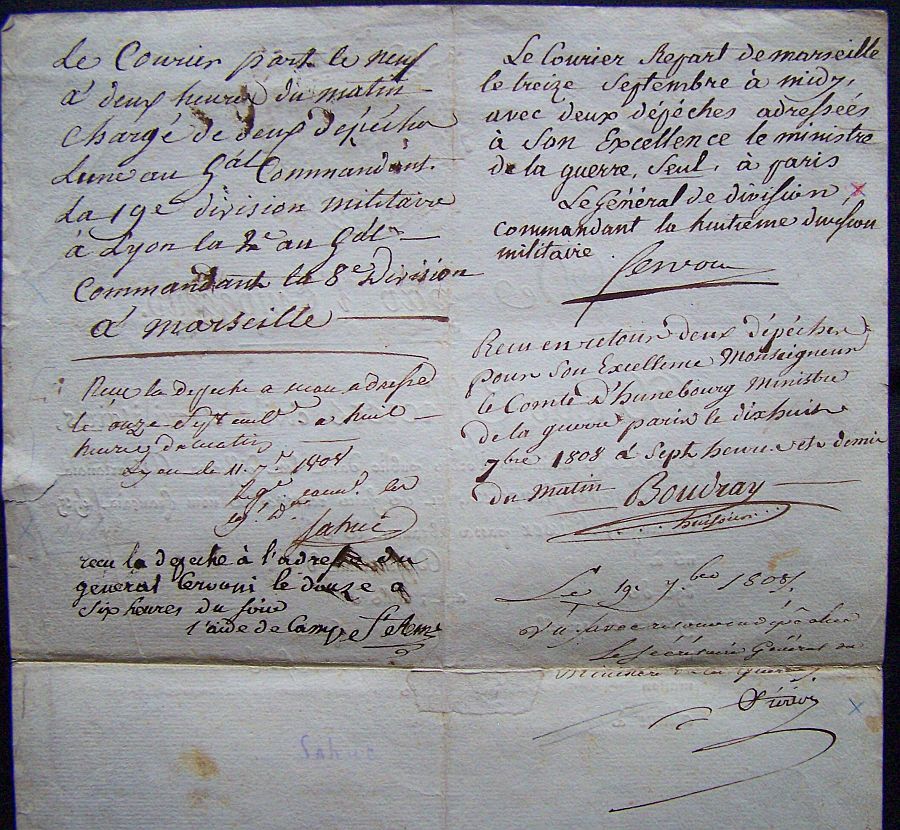 Le Courier part le neuf
à deux heures du matin
chargé de deux dépéches
Lune au Gal Commandant
La 19e division militaire
à Lyon la 2e au Gal
Commandant la 8e Division
à marseille
Recu la depeche a mon adresse
le onze Septembre a huit
heure du matin
Lyon le 11. 7bre 1808
Le gal comt la
19e Don
Sahuc
recu la depeche à l'adresse du
général Cervoni le douze a
Six heures du soir
l'aide de Camp
Le Courier Repart de marseille
le treize Septembre à midy,
avec deux dépéches adressées
à Son Excellence le ministre
de la guerre, Seul, à paris
Le Général de division,
commandant la huitième division
militaire
Cervoni
Recu en retour deux dépéches
pour Son Excellence Monseigneur
le Comte D'hunebourg Ministre
de la guerre paris le dixhuit
7bre 1808 à Sept heures et demie
du matin Boudray
huissier
Le 19 7bre 1808.
Vu
Le Sécrétaire Général du
Ministère de la Guerre,
Sahuc